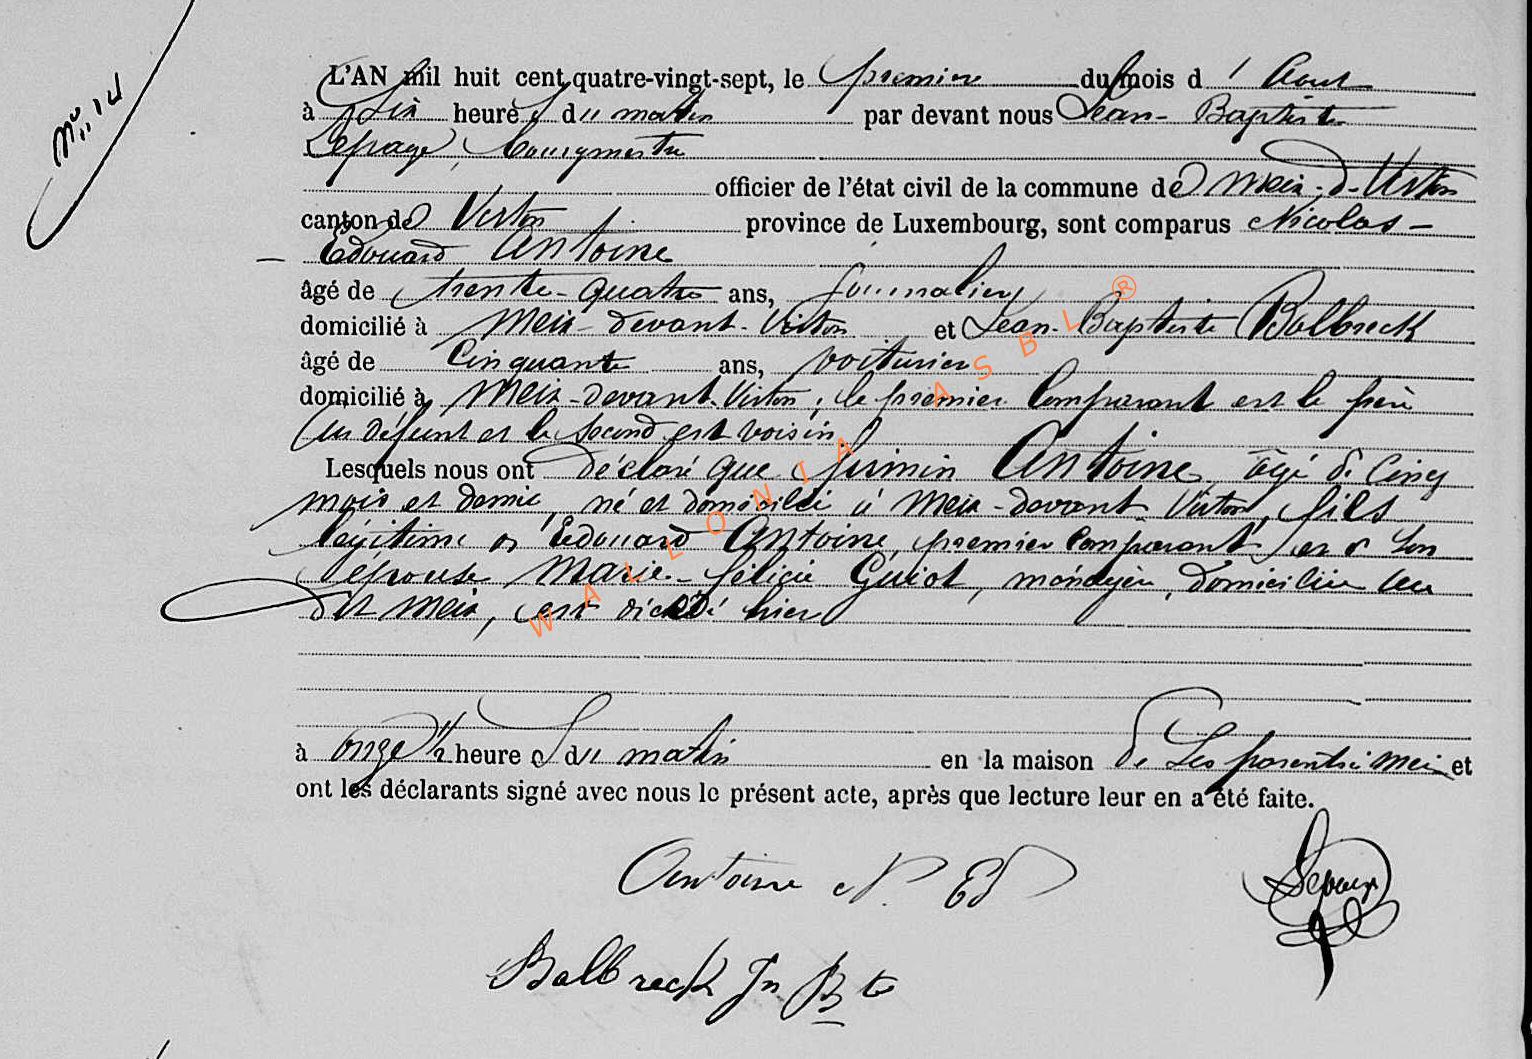 N° 14
L'AN mil huit cent quatre-vingt-sept, le premier du mois d'Aout
à six heures du matin par devant nous Jean-Baptiste
Lepage, bourgmestre
officier de l'état civil de la commune de Meix-d-Virton
canton de Virton province de Luxembourg, sont comparus Nicolas-
Edouard Antoine
âgé de trente-quatre ans, journalier
domicilié à Meix-devant-Virton et Jean-Baptiste Balbreck
âgé de cinquante ans, voiturier
domicilié à Meix-devant-Virton, le premier comparant est le père
du défunt et le second est voisin
Lesquels nous ont déclaré que Firmin Antoine, âgé de cinq
mois et demi, né et domicilié à Meix-devant Virton, fils
légitime de Edouard Antoine, premier comparant, et de son
épouse Marie-Félicie Guiot, ménagère, domiciliée au
dit Meix, est décédé hier
à onze 1/2 heures du matin en la maison de ses parents à Meix et
ont les déclarants signé avec nous le présent acte, après que lecture leur en a été faite.
Antoine N. Ed
Lepage
Balbreck Jn Bte
WALLONIA ASBL ®